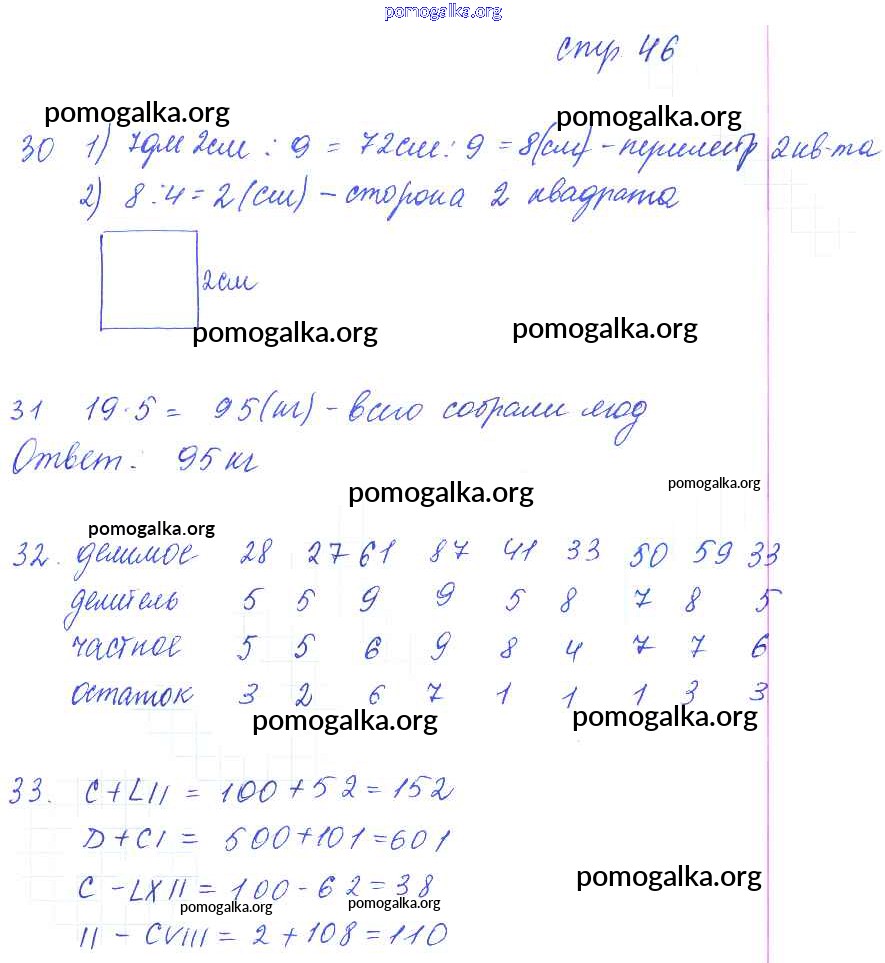 pomogalka.org
стр 46
pomogalka.org pomogalka.org
30 1) 7дм 2см : 9 = 72см : 9 = 8(см) - периметр 2 кв-та
2) 8 : 4 = 2 (см) - сторона 2 квадрата
2см
pomogalka.org pomogalka.org
31 19 · 5 = 95(кг) - всего собрали ягод
Ответ: 95 кг
pomogalka.org pomogalka.org
pomogalka.org
32. делимое 28 27 61 87 41 33 50 59 33
делитель 5 5 9 9 5 8 7 8 5
частное 5 5 6 9 8 4 7 7 6
остаток 3 2 6 7 1 1 1 3 3
pomogalka.org pomogalka.org
33. C + LII = 100 + 52 = 152
D + CI = 500 + 101 = 601
C - LXII = 100 - 62 = 38
pomogalka.org
pomogalka.org pomogalka.org
II - CVIII = 2 + 108 = 110